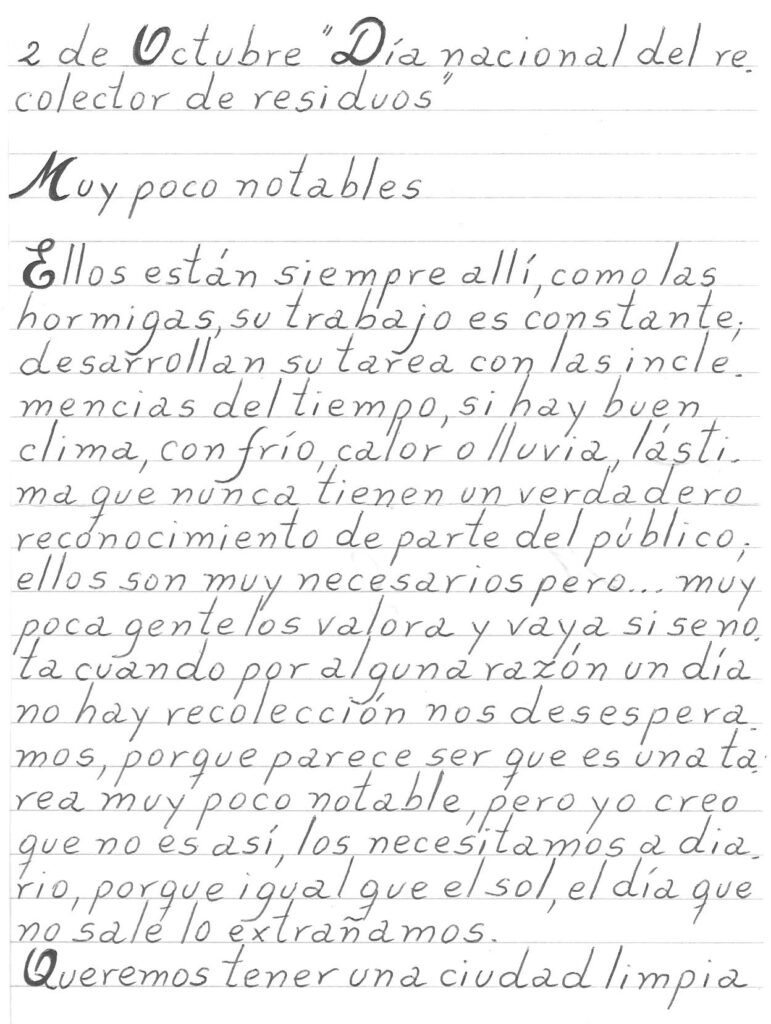 2 de Octubre "Día nacional del re-
colector de residuos"
Muy poco notables
Ellos están siempre allí, como las
hormigas, su trabajo es constante;
desarrollan su tarea con las incle-
mencias del tiempo, si hay buen
clima, con frío, calor o lluvia, lásti-
ma que nunca tienen un verdadero
reconocimiento de parte del público;
ellos son muy necesarios pero... muy
poca gente los valora y vaya si se no-
ta cuando por alguna razón un día
no hay recolección nos desespera-
mos, porque parece ser que es una ta-
rea muy poco notable, pero yo creo
que no es así, los necesitamos a dia-
rio, porque igual que el sol, el día que
no sale lo extrañamos.
Queremos tener una ciudad limpia